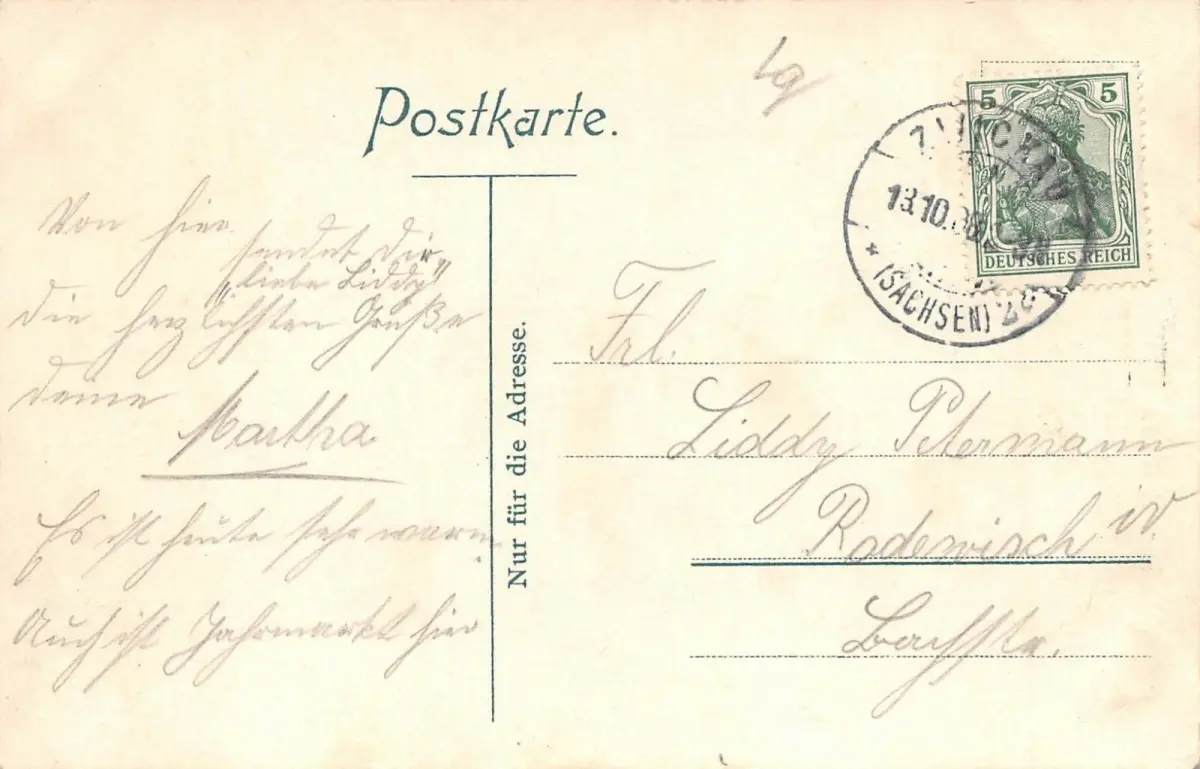 Postkarte.
lg
5 5
DEUTSCHES REICH
ZWICKAU
13.10.06
* (SACHSEN) 2c
Von hier
sendet dir
"liebe Liddy"
die herzlichsten Grüße
deine
Martha
Es ist heute sehr warm
Auch ist Jahrmarkt hier
Nur für die Adresse.
Frl.
Liddy Petermann
Rodewisch i/V.
Bachstr.